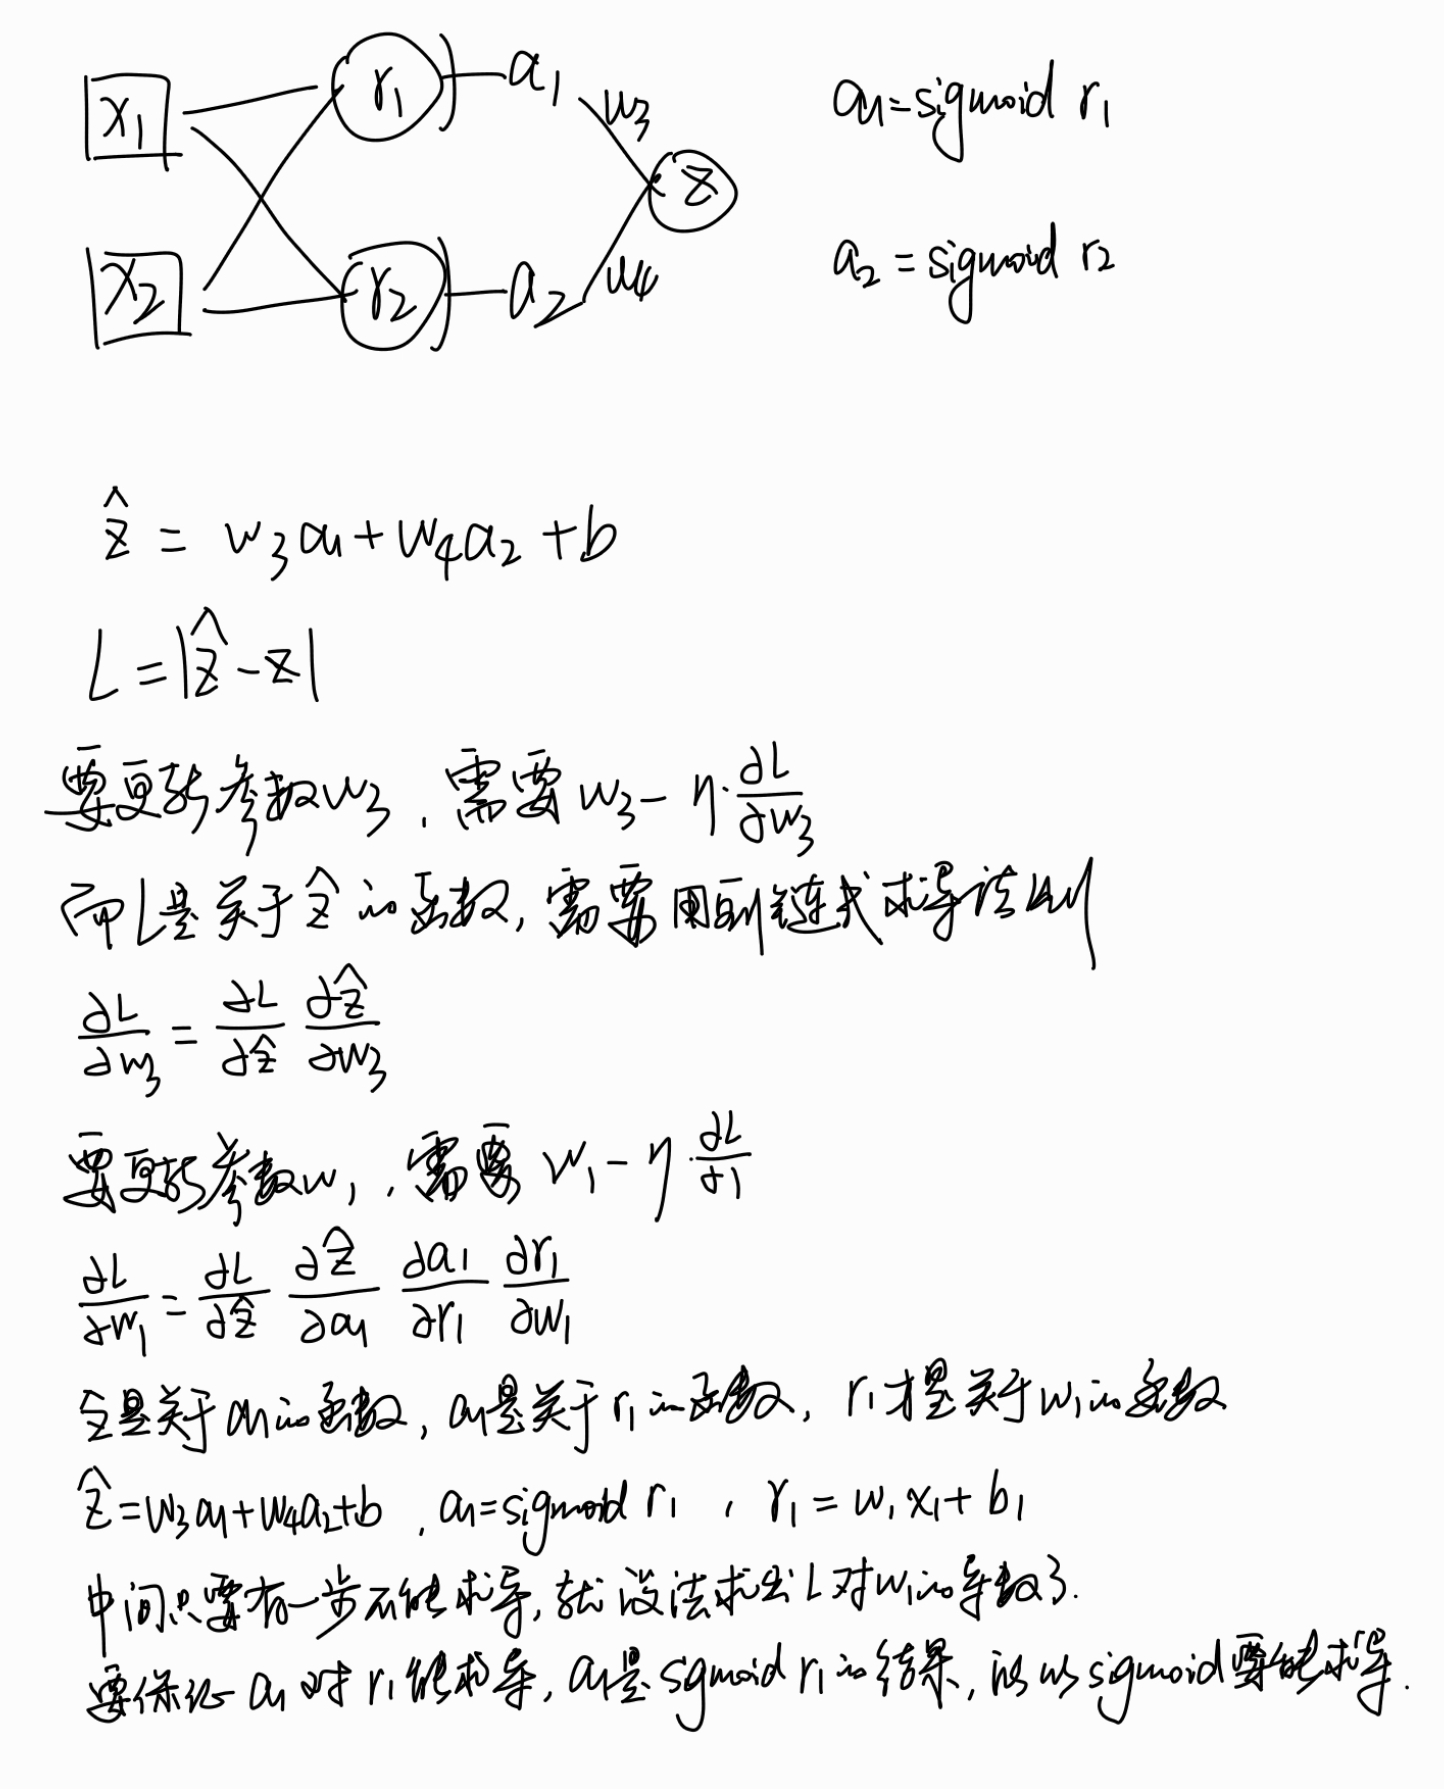 x₁ r₁ a₁ w₃ a₁=sigmoid r₁
z
x₂ r₂ a₂ w₄ a₂=sigmoid r₂
ẑ = w₃a₁+w₄a₂+b
L=|ẑ-z|
要更新参数w₃,需要w₃-η·∂L/∂w₃
而L是关于ẑ的函数,需要用到链式求导法则
∂L/∂w₃=∂L/∂ẑ ∂ẑ/∂w₃
要更新参数w₁,需要w₁-η·∂L/∂1
∂L/∂w₁=∂L/∂ẑ ∂ẑ/∂a₁ ∂a₁/∂r₁ ∂r₁/∂w₁
ẑ是关于a₁的函数,a₁是关于r₁的函数,r₁才是关于w₁的函数
ẑ=w₃a₁+w₄a₂+b,a₁=sigmoid r₁,r₁=w₁x₁+b₁
中间只要有一步不能求导,就没法求出L对w₁的导数了.
要保证a₁对r₁能求导,a₁是sgmoid r₁的结果,所以sigmoid要能求导.